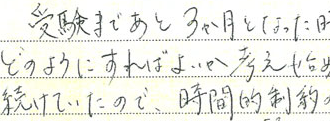 受験まであと3か月となった時
どのようにすればよいか考え始め
続けていたので、時間的制約の